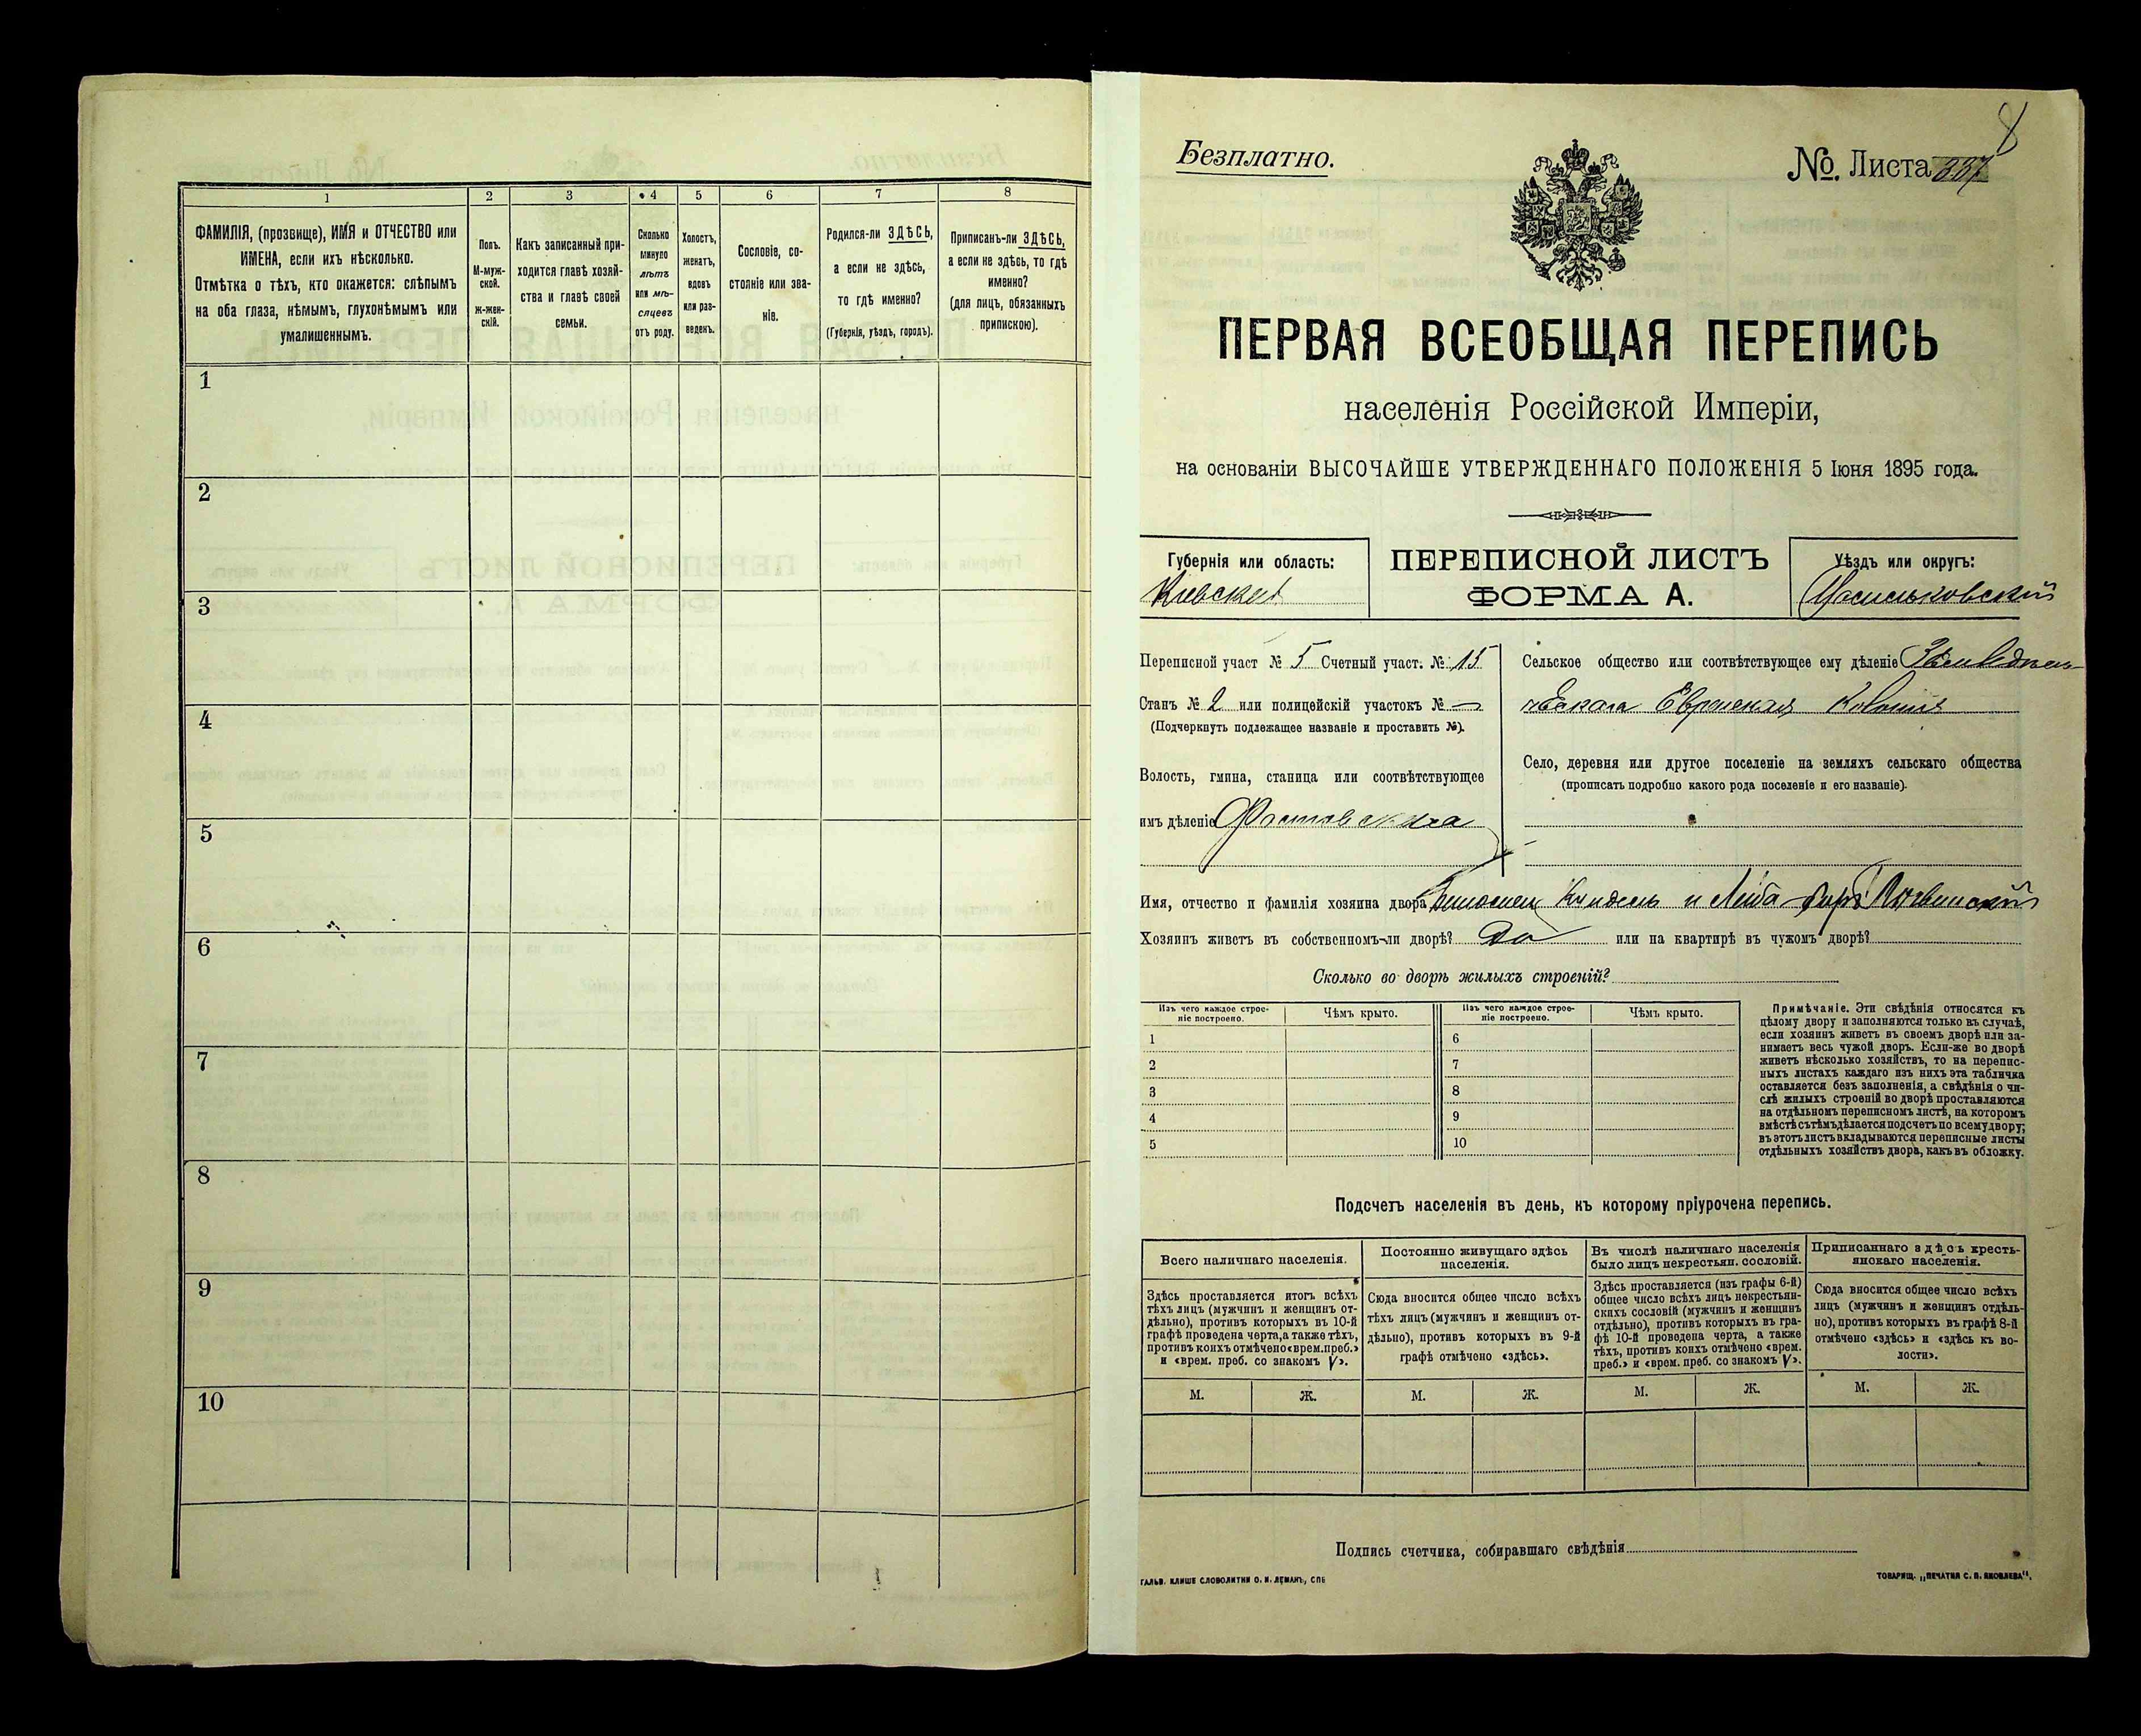 1
2
3
4
5
6
7
8
ФАМИЛІЯ, (прозвище), ИМЯ и ОТЧЕСТВО или
ИМЕНА, если ихъ нѣсколько.
Отмѣтка о тѣхъ, кто окажется: слѣпымъ
на оба глаза, нѣмымъ, глухонѣмымъ или
умалишеннымъ.
Полъ.
М-муж-
ской.
ж-жен-
скій.
Какъ записанный при-
ходится главѣ хозяй-
ства и главѣ своей
семьи.
Сколько
минуло
лѣтъ
или мѣ-
сяцевъ
отъ роду.
Холостъ,
женатъ,
вдовъ
или раз-
веденъ.
Сословіе, со-
стояніе или зва-
ніе.
Родился-ли ЗДѢСЬ,
а если не здѣсь,
то гдѣ именно?
(Губернія, уѣздъ, городъ).
Приписанъ-ли ЗДѢСЬ,
а если не здѣсь, то гдѣ
именно?
(для лицъ, обязанныхъ
припискою).
1
2
3
4
5
6
7
8
9
10
8
Безплатно.
№. Листа 337
ПЕРВАЯ ВСЕОБЩАЯ ПЕРЕПИСЬ
населенія Россійской Имперіи,
на основаніи ВЫСОЧАЙШЕ УТВЕРЖДЕННАГО ПОЛОЖЕНІЯ 5 Іюня 1895 года.
Губернія или область:
Кіевская
ПЕРЕПИСНОЙ ЛИСТЪ
ФОРМА А.
Уѣздъ или округъ:
Васильковскій
Переписной участ № 5 Счетный участ. № 15
Станъ № 2 или полицейскій участокъ № —
(Подчеркнуть подлежащее названіе и проставить №).
Волость, гмина, станица или соотвѣтствующее
имъ дѣленіе Фастовская
Сельское общество или соотвѣтствующее ему дѣленіе
Еврейская Колонія
Село, деревня или другое поселеніе на земляхъ сельскаго общества
(прописать подробно какого рода поселеніе и его названіе).
Имя, отчество и фамилія хозяина двора и Лейба
Хозяинъ живетъ въ собственномъ-ли дворѣ? Да или на квартирѣ въ чужомъ дворѣ?
Сколько во дворѣ жилыхъ строеній?
Изъ чего каждое строе-
ніе построено.
Чѣмъ крыто.
Изъ чего каждое строе-
ніе построено.
Чѣмъ крыто.
1
6
2
7
3
8
4
9
5
10
Примѣчаніе. Эти свѣдѣнія относятся къ
цѣлому двору и заполняются только въ случаѣ,
если хозяинъ живетъ въ своемъ дворѣ или за-
нимаетъ весь чужой дворъ. Если-же во дворѣ
живетъ нѣсколько хозяйствъ, то на перепис-
ныхъ листахъ каждаго изъ нихъ эта табличка
оставляется безъ заполненія, а свѣдѣнія о чи-
слѣ жилыхъ строеній во дворѣ проставляются
на отдѣльномъ переписномъ листѣ, на которомъ
вмѣстѣ съ тѣмъ дѣлается подсчетъ по всему двору;
въ этотъ листъ вкладываются переписные листы
отдѣльныхъ хозяйствъ двора, какъ въ обложку.
Подсчетъ населенія въ день, къ которому пріурочена перепись.
Всего наличнаго населенія.
Постоянно живущаго здѣсь
населенія.
Въ числѣ наличнаго населенія
было лицъ некрестьян. сословій.
Приписаннаго здѣсь кресть-
янскаго населенія.
Здѣсь проставляется итогъ всѣхъ
тѣхъ лицъ (мужчинъ и женщинъ от-
дѣльно), противъ которыхъ въ 10-й
графѣ проведена черта, а также тѣхъ,
противъ коихъ отмѣчено «врем. преб.»
и «врем. преб. со знакомъ V».
Сюда вносится общее число всѣхъ
тѣхъ лицъ (мужчинъ и женщинъ от-
дѣльно), противъ которыхъ въ 9-й
графѣ отмѣчено «здѣсь».
Здѣсь проставляется (изъ графы 6-й)
общее число всѣхъ лицъ некрестьян-
скихъ сословій (мужчинъ и женщинъ
отдѣльно), противъ которыхъ въ гра-
фѣ 10-й проведена черта, а также
тѣхъ, противъ коихъ отмѣчено «врем.
преб.» и «врем. преб. со знакомъ V».
Сюда вносится общее число всѣхъ
лицъ (мужчинъ и женщинъ отдѣль-
но), противъ которыхъ въ графѣ 8-й
отмѣчено «здѣсь» и «здѣсь къ во-
лости».
М.
Ж.
М.
Ж.
М.
Ж.
М.
Ж.
Подпись счетчика, собиравшаго свѣдѣнія
ГАЛЬВ. КЛИШЕ СЛОВОЛИТНИ О. И. ЛЕМАНЪ, СПБ
ТОВАРИЩ. „ПЕЧАТНЯ С. П. ЯКОВЛЕВА".